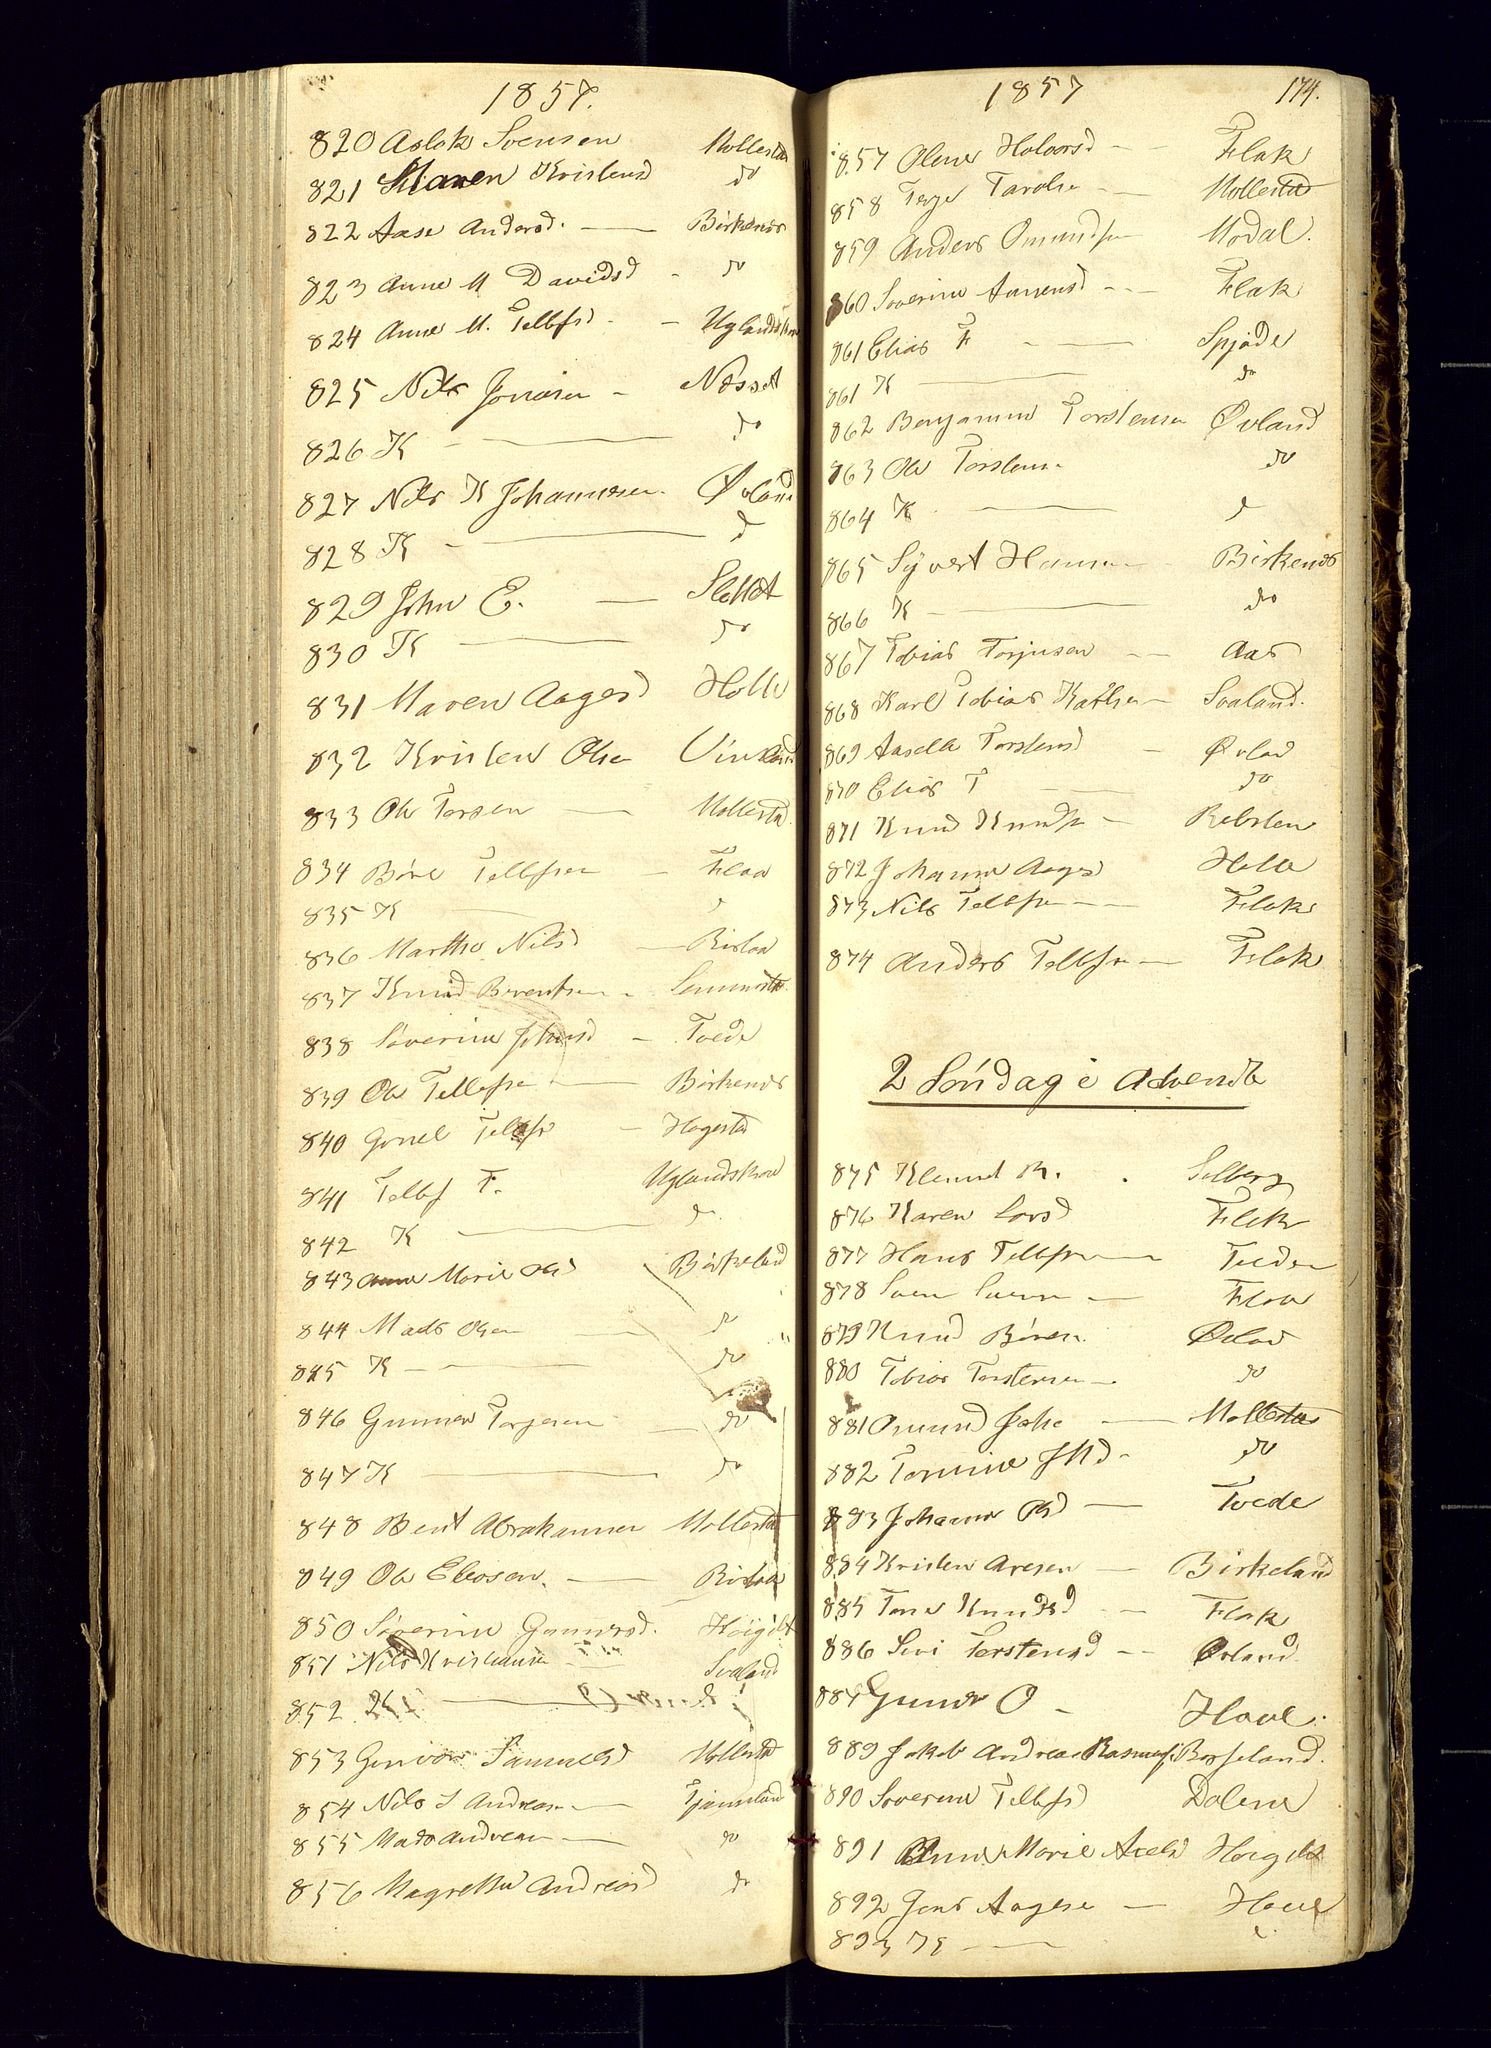 1857.
820 Aslak Svensen Mollestad
821 Maren Kristensd do
822 Aase Andersd. — Birkenes
823 Anne M Davidsd - do
824 Anne M. Tellefsd - Uglandskaar
825 Nils Jonasen - Næsset
826 K — do
827 Nils K Johannesen Øvland
828 K — d
829 John E. — Slettet
830 K — do
831 Maren Aagesd Holle
832 Kristen Olsen
833 Ole Torsen — Mollestad
834 Børe Tellefsen — Flaa
835 K —
836 Marthe Nilsd — Risløa
837 Knud Berentsen -
838 Søverine Johnsd - Tvede
839 Ole Tellefsen — Birkenes
840 Gonel Tellefs - Hagestad
841 Tellef F. Uglandskaar
842 K — do
843 Anne Marie Olsd Birkeland
844 Mads Olsen do
845 K — do
846 Gunner Torjesen — do
847 K — do
848 Bent Abrahamsen Mollestad
849 Ole Eliasen. — Risløa
850 Søverine Gunnersd. Høigilt
851 Nils Kristiansen — Svaland
852 K — d
853 Gunvor Samuelsd Mollestad
854 Nils S Andreasen — Tjomsland
855 Mads Andreasen — do
856 Magrethe Andreasd do
1857 174.
857 Olene Halvorsd — Flak
858 Terje Taralsen — Mollestad
859 Anders Omundsen Modal.
860 Soverine Aanensd - - - Flak
861 Elias F - — Spjøde
861 K — do
862 Benjamin Torstensen Øvland
863 Ole Torstensen do
864 K — d
865 Syvert Hansen — Birkenes
866 K — do
867 Tobias Torjusen — Aas
868 Karl Tobias Karlsen — Svaland.
869 Aaselle Torstensd — Øvland
870 Elias T — do
871 Knud Knudsen — Rebsten
872 Johanne Aagesd Holle
873 Nils Tellefsen — Flak
874 Anders Tellefsen — Flak
2 Søndag i Advendte
875 Klemet K. . Solberg
876 Karen Larsd Flak
877 Hans Tellefsen — Tveden
878 Sven Svensen — Flaa
879 Knud Børesen Øvland
880 Tobias Torstensen — do
881 Omund Johs — Mollestad
882 Tomine J M d - do
883 Johanne K d — Tvede
884 Kristen Aresen — Birkeland
885 Tone Knudsd — Flak
886 Sivi Torstensd - - Øvland
887 Gunder O - Hove.
889 Jakob Andreas Rasmus Berseland.
890 Soverine Tellefsd Dalene
891 Anne Marie Axelsd Høigilt
892 Jens Aagesen — Hove
893 K —